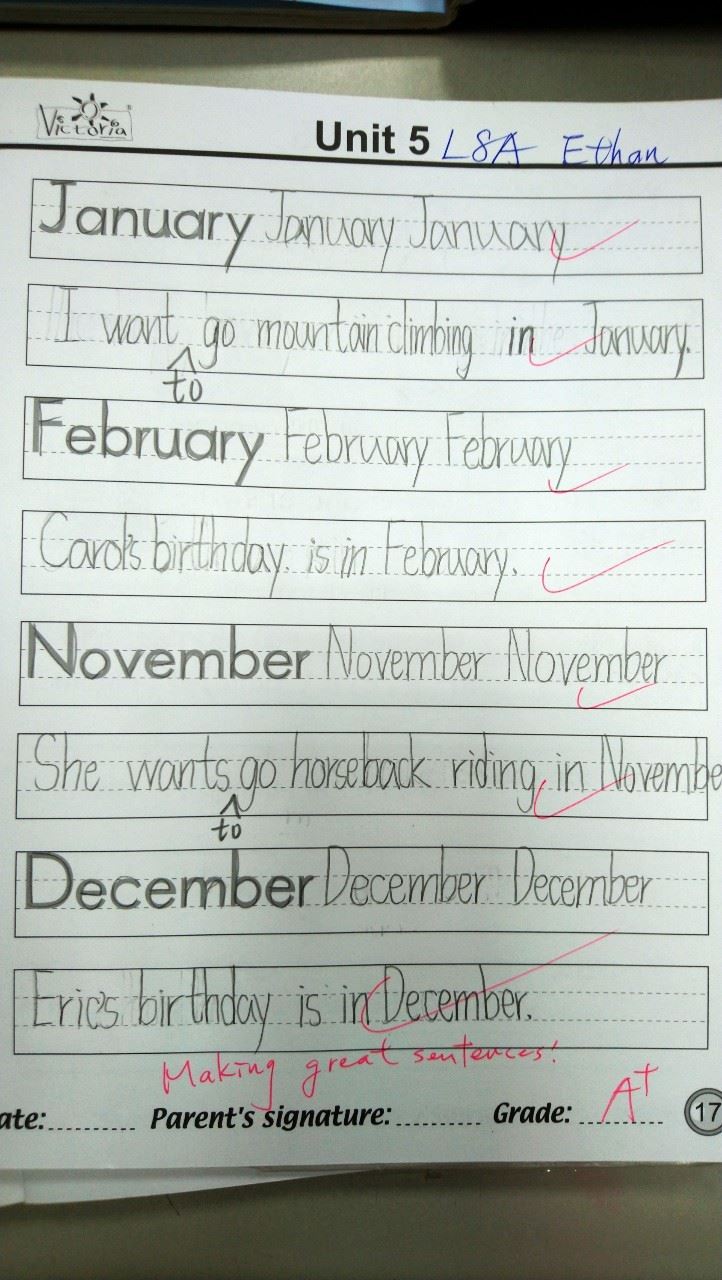 Victoria
Unit 5 L8A Ethan
January January January
I want go mountain climbing in January.
to
February February February
Carol's birthday. is in February.
November November November
She wants go horseback riding in Novembe
to
December December December
Eric's birthday is in December.
Making great sentences!
ate:......... Parent's signature:.......... Grade:.......... A+ 17